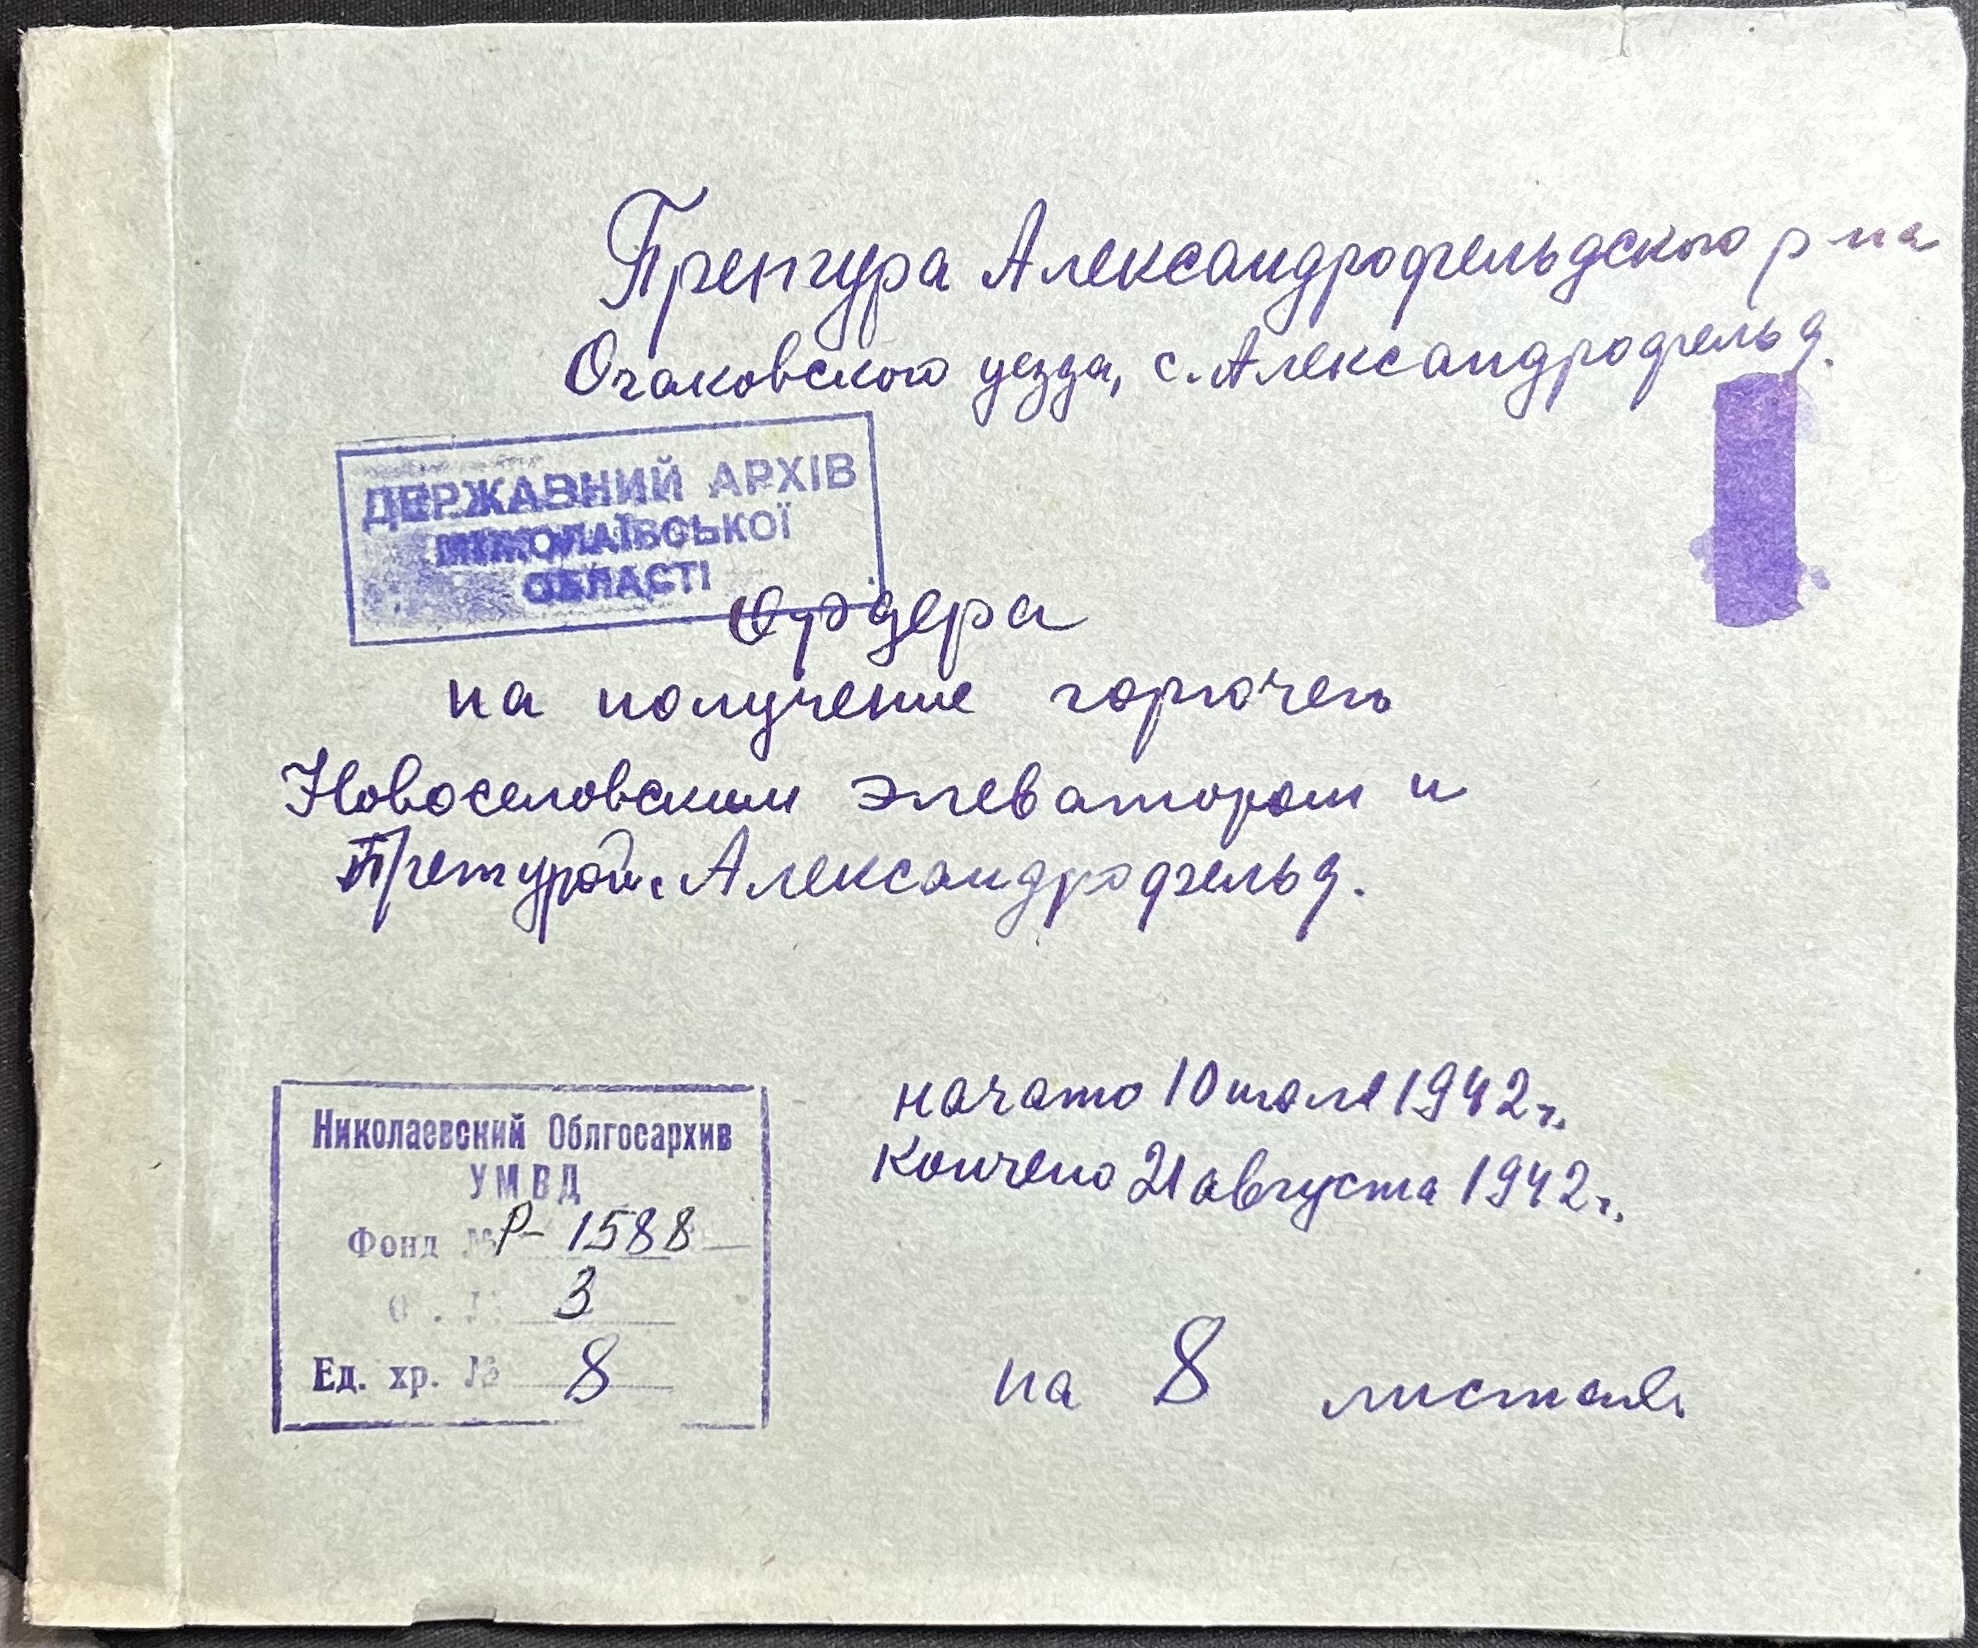 Претура Александрофельдского р-на
Очаковского уезда, с. Александрофельд.
ДЕРЖАВНИЙ АРХІВ
МИКОЛАЇВСЬКОЇ
ОБЛАСТІ
Ордера
на получение горючего
Новоселовским элеватором и
Претурой с. Александрофельд.
начато 10 июля 1942 г.
Кончено 21 августа 1942 г.
Николаевский Облгосархив
УМВД
Фонд № Р-1588
О . № 3
Ед. хр. № 8
на 8 листах